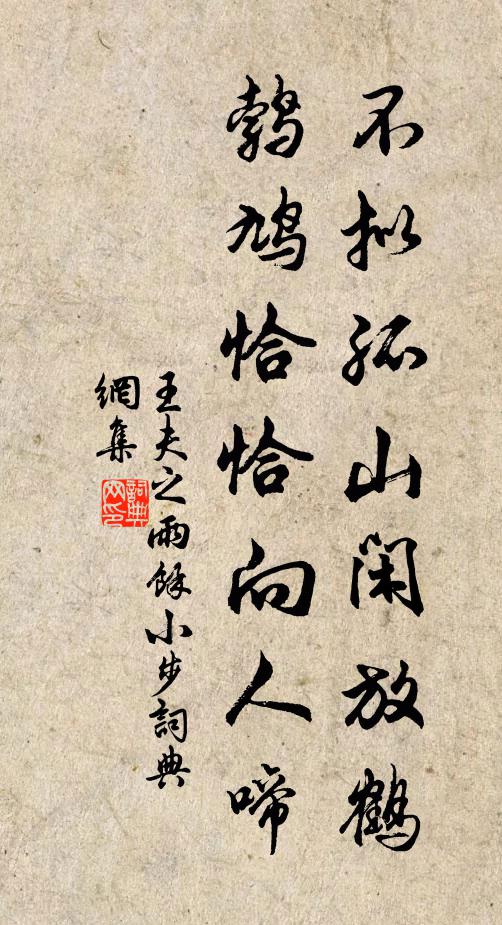 不拟孤山闲放鹤
鹁鸠恰恰向人啼
王夫之雨馀小步詞典
網集
詞典
网印